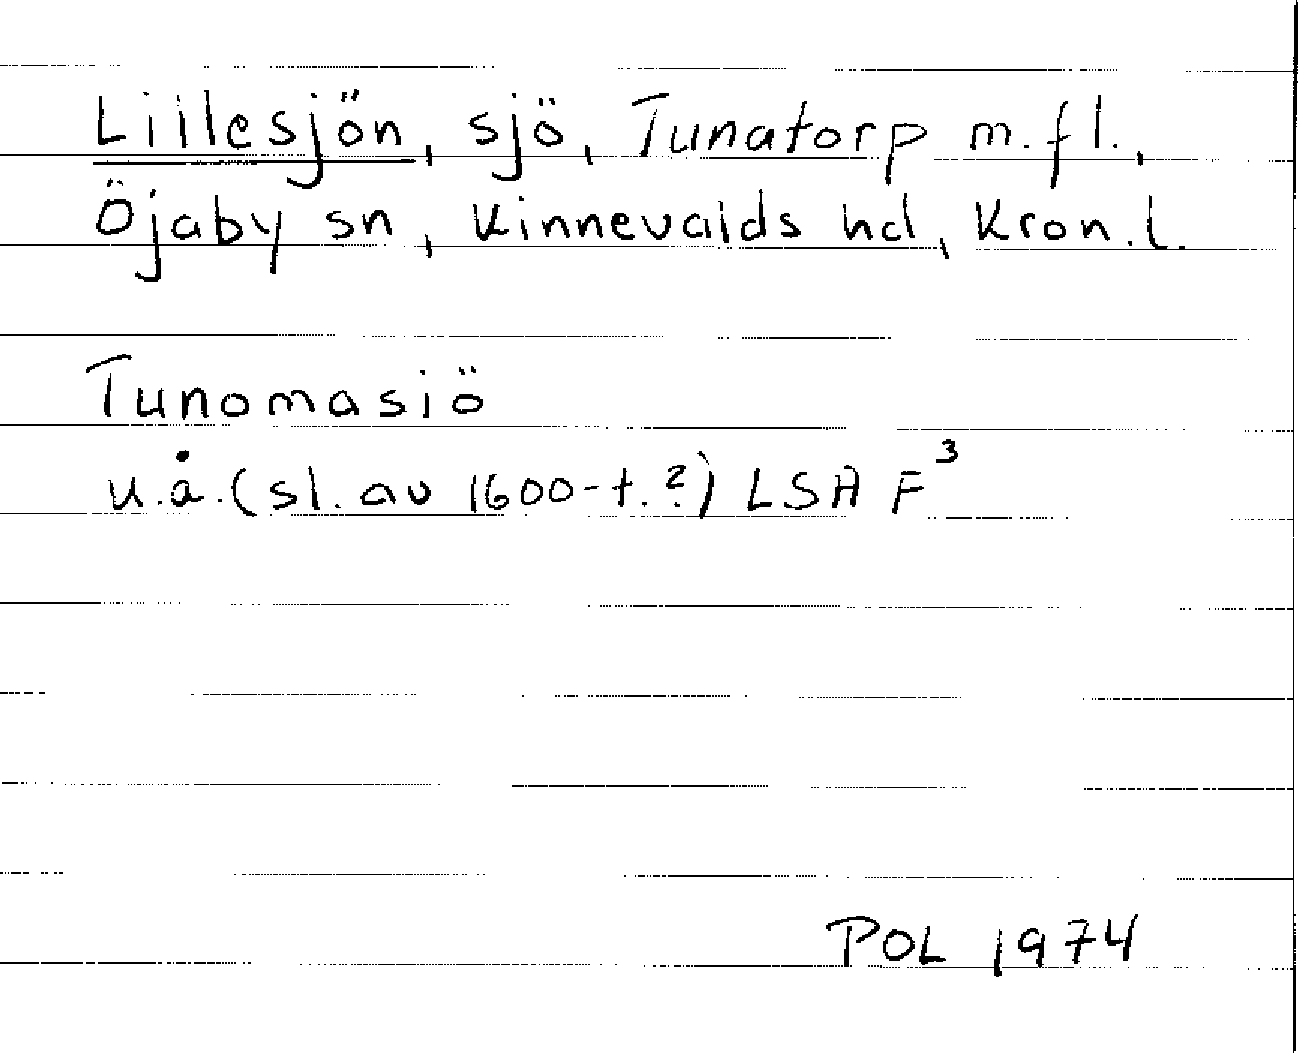 Lillesjön, sjö, Tunatorp m.fl.,
Öjaby sn, Kinnevalds hd, Kron.l.
Tunomasiö
u.å.(sl. av 1600-t.?) LSA F³
POL 1974